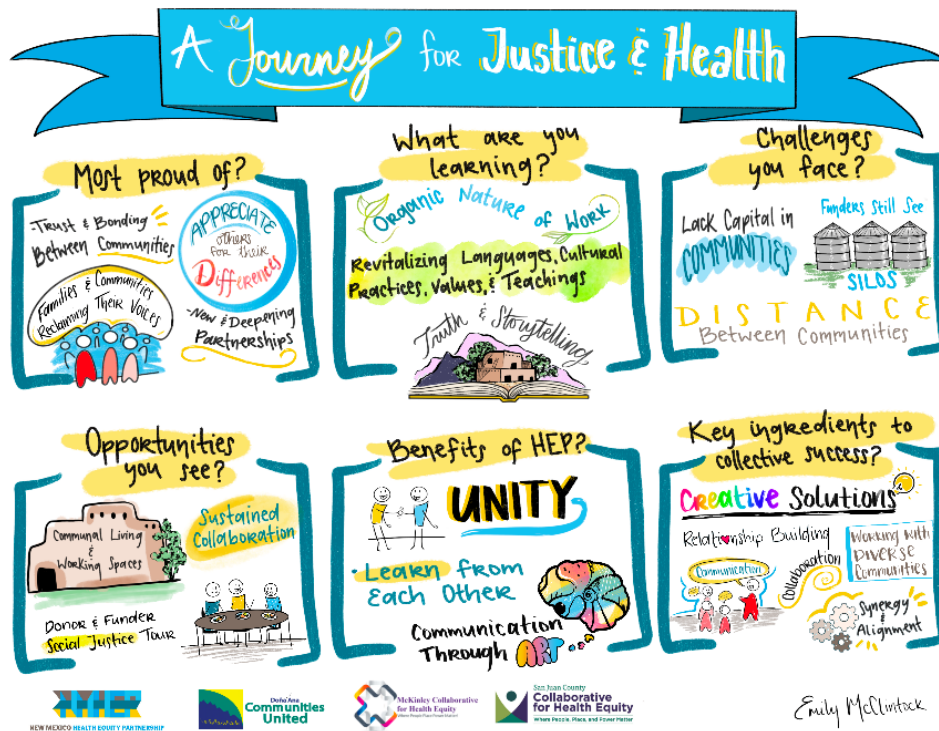 A Journey for Justice & Health
Most proud of?
-Trust & Bonding
Between Communities
Families & Communities
Reclaiming Their Voices
APPRECIATE
others
for their
Differences
-New & Deepening
Partnerships
What are you
learning?
Organic Nature of Work
Revitalizing Languages, Cultural
Practices, Values, & Teachings
Truth & Storytelling
Challenges
you face?
Lack Capital in
COMMUNITIES
Funders Still See
SILOS
DISTANCE
Between Communities
Opportunities
you see?
Communal Living
&
Working Spaces
Sustained
Collaboration
Donor & Funder
Social Justice Tour
Benefits of HEP?
UNITY
• Learn from
Each Other
Communication
Through ART
Key ingredients to
collective success?
Creative Solutions
Relationship Building
Communication
Collaboration
Working with
Diverse
Communities
Synergy
&
Alignment
NEW MEXICO HEALTH EQUITY PARTNERSHIP
Doña Ana
Communities
United
McKinley Collaborative
for Health Equity
Where People, Place, Power Matter!
San Juan County
Collaborative
for Health Equity
Where People, Place, and Power Matter
Emily McClintock